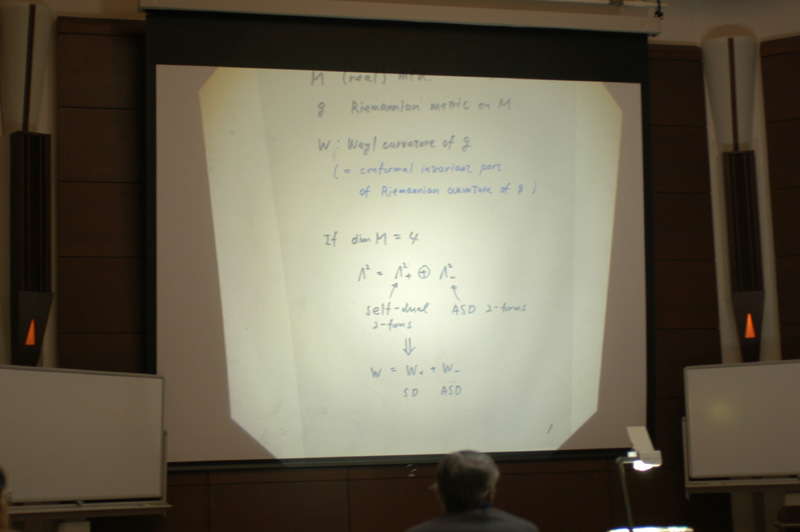 M (real) mfd.
g Riemannian metric on M
W : Weyl curvature of g
( = conformal invariant part
of Riemannian curvature of g )
If dim M = 4
Λ² = Λ²₊ ⊕ Λ²₋
self-dual 2-forms ASD 2-forms
⇓
W = W₊ + W₋
SD ASD
1